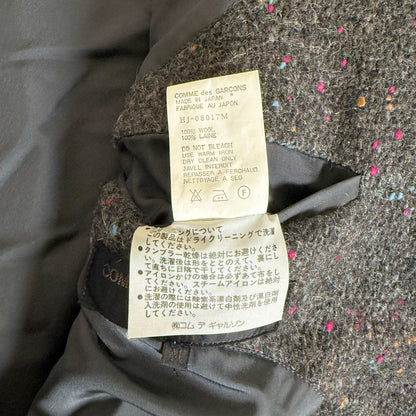 COMME des GARÇONS
MADE IN JAPAN
FABRIQUE AU JAPON
HJ-08017M
100% WOOL
100% LAINE
DO NOT BLEACH
USE WARM IRON
DRY CLEAN ONLY
JAVEL INTERDIT
REPASSER A FERCHAUD
NETTOYAGE A SEC
F
クリーニングについて
この製品はドライクリーニングで洗濯
してください。
●タンブラー乾燥は絶対にお避けくださ
い。洗濯後は形をととのえて、裏にして
直ちに日陰で干してください。
●アイロンかけの場合は必ずあて布を
してください。スチームアイロンはお避けください。
●洗濯の際には酸素系漂白剤及び漂白剤
入洗剤の使用は避けて中性洗剤を使用
してください。
㈱コム デ ギャルソン
COM